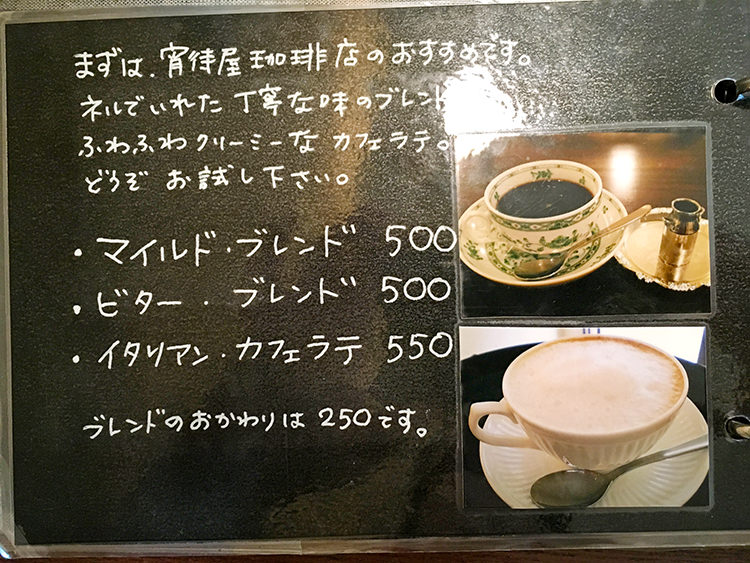 まずは、宵待屋珈琲店のおすすめです。
ネルでいれた丁寧な味のブレンド
ふわふわクリーミーなカフェラテ。
どうぞ お試し下さい。
・マイルド・ブレンド 500
・ビター・ブレンド 500
・イタリアン・カフェラテ 550
ブレンドのおかわりは 250です。